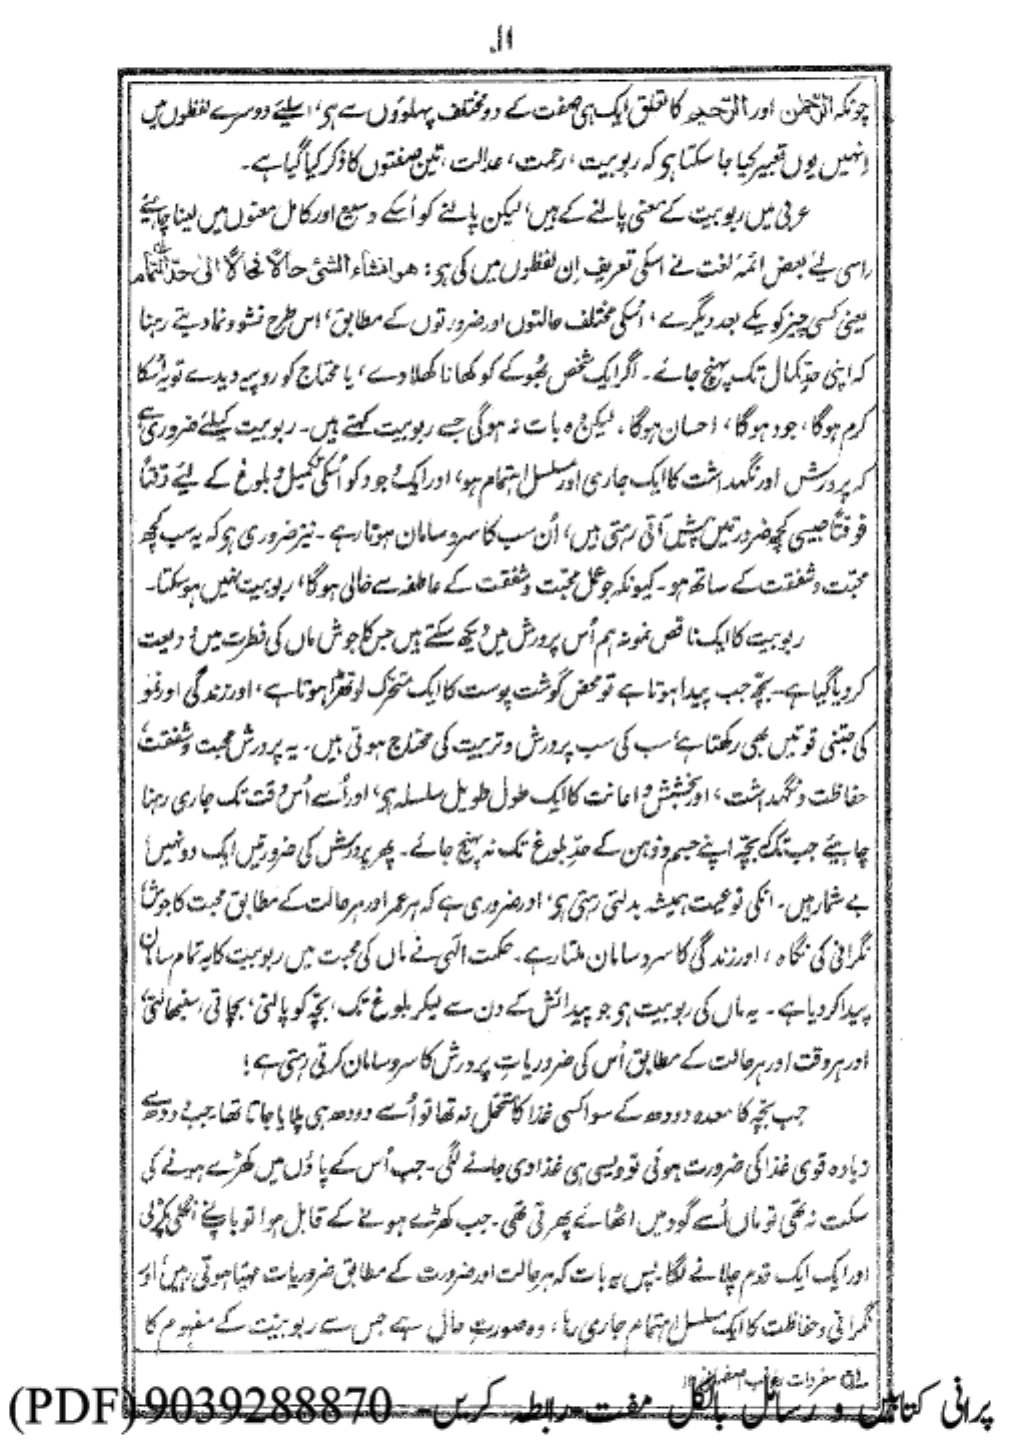 ۱۱
چونکہ الرّحمٰن اور الرّحیم کا تعلق ایک ہی صفت کے دو مختلف پہلوؤں سے ہو، اسلیئے دوسرے لفظوں میں
اِنہیں یوں تعبیر کیا جا سکتا ہو کہ ربوبیت، رحمت، عدالت، تین صفتوں کا ذکر کیا گیا ہے۔
عربی میں ربوبیت کے معنی پالنے کے ہیں، لیکن پالنے کو اُسکے وسیع اور کامل معنوں میں لینا چاہیئے
اسی لیئے بعض ائمۂ لغت نے اسکی تعریف اِن لفظوں میں کی ہو: ھو انشاء الشئی حالاً فحالاً الی حدّ التمام
یعنی کسی چیز کو یکے بعد دیگرے، اُسکی مختلف حالتوں اور ضرورتوں کے مطابق، اس طرح نشو و نما دیتے رہنا
کہ اپنی حدِ کمال تک پہنچ جائے۔ اگر ایک شخص بھوکے کو کھانا کھلا دے، یا محتاج کو روپیہ دیدے تو یہ اُسکا
کرم ہوگا، جود ہوگا، احسان ہوگا، لیکن وہ بات نہ ہوگی جسے ربوبیت کہتے ہیں۔ ربوبیت کیلئے ضروری ہے
کہ پرورش اور نگہداشت کا ایک جاری اور مسلسل اہتمام ہو، اور ایک وجود کو اُسکی تکمیل و بلوغ کے لیئے وقتاً
فوقتاً جیسی کچھ ضرورتیں پیش آتی رہتی ہیں، اُن سب کا سروسامان ہوتا رہے۔ نیز ضروری ہو کہ یہ سب کچھ
محبّت و شفقت کے ساتھ ہو۔ کیونکہ جو عمل محبّت و شفقت کے عاطفہ سے خالی ہوگا، ربوبیت نہیں ہوسکتا۔
ربوبیت کا ایک ناقص نمونہ ہم اُس پرورش میں دیکھ سکتے ہیں جس کا جوش ماں کی فطرت میں ودیعت
کر دیا گیا ہے۔ بچّہ جب پیدا ہوتا ہے تو محض گوشت پوست کا ایک متحرّک لوتھڑا ہوتا ہے، اور زندگی اور نمو
کی جتنی قوتیں بھی رکھتا ہے، سب کی سب پرورش و تربیت کی محتاج ہوتی ہیں۔ یہ پرورش محبت و شفقت،
حفاظت و نگہداشت، اور بخشش و اعانت کا ایک طول طویل سلسلہ ہو، اور اُسے اُس وقت تک جاری رہنا
چاہیئے جب تک بچّہ اپنے جسم و ذہن کے حدِّ بلوغ تک نہ پہنچ جائے۔ پھر پرورش کی ضرورتیں ایک دو نہیں،
بے شمار ہیں۔ انکی نوعیت ہمیشہ بدلتی رہتی ہو، اور ضروری ہے کہ ہر عمر اور ہر حالت کے مطابق محبت کا جوش،
نگرانی کی نگاہ، اور زندگی کا سروسامان ملتا رہے۔ حکمت الٰہی نے ماں کی محبت میں ربوبیت کا یہ تمام سامان
پیدا کر دیا ہے۔ یہ ماں کی ربوبیت ہو جو پیدائش کے دن سے لیکر بلوغ تک، بچّہ کو پالتی، بچاتی، سنبھالتی،
اور ہر وقت اور ہر حالت کے مطابق اُس کی ضروریاتِ پرورش کا سروسامان کرتی رہتی ہے!
جب بچّہ کا معدہ دودھ کے سوا کسی غذا کا متحمّل نہ تھا تو اُسے دودھ ہی پلایا جاتا تھا۔ جب دودھ سے
زیادہ قوی غذا کی ضرورت ہوئی تو ویسی ہی غذا دی جانے لگی۔ جب اُس کے پاؤں میں کھڑے ہونے کی
سکت نہ تھی تو ماں اُسے گود میں اٹھائے پھرتی تھی۔ جب کھڑے ہونے کے قابل ہوا تو باپ نے انگلی پکڑ لی
اور ایک ایک قدم چلانے لگا۔ پس یہ بات کہ ہر حالت اور ضرورت کے مطابق ضروریات مہیّا ہوتی رہیں اور
نگرانی و حفاظت کا ایک مسلسل اہتمام جاری رہا، وہ صورتِ حال ہے جس سے ربوبیت کے مفہوم کا
مفردات راغب اصفہانی
پرانی کتابیں و رسائل بالکل مفت۔ رابطہ کریں۔ 9039288870 (PDF)